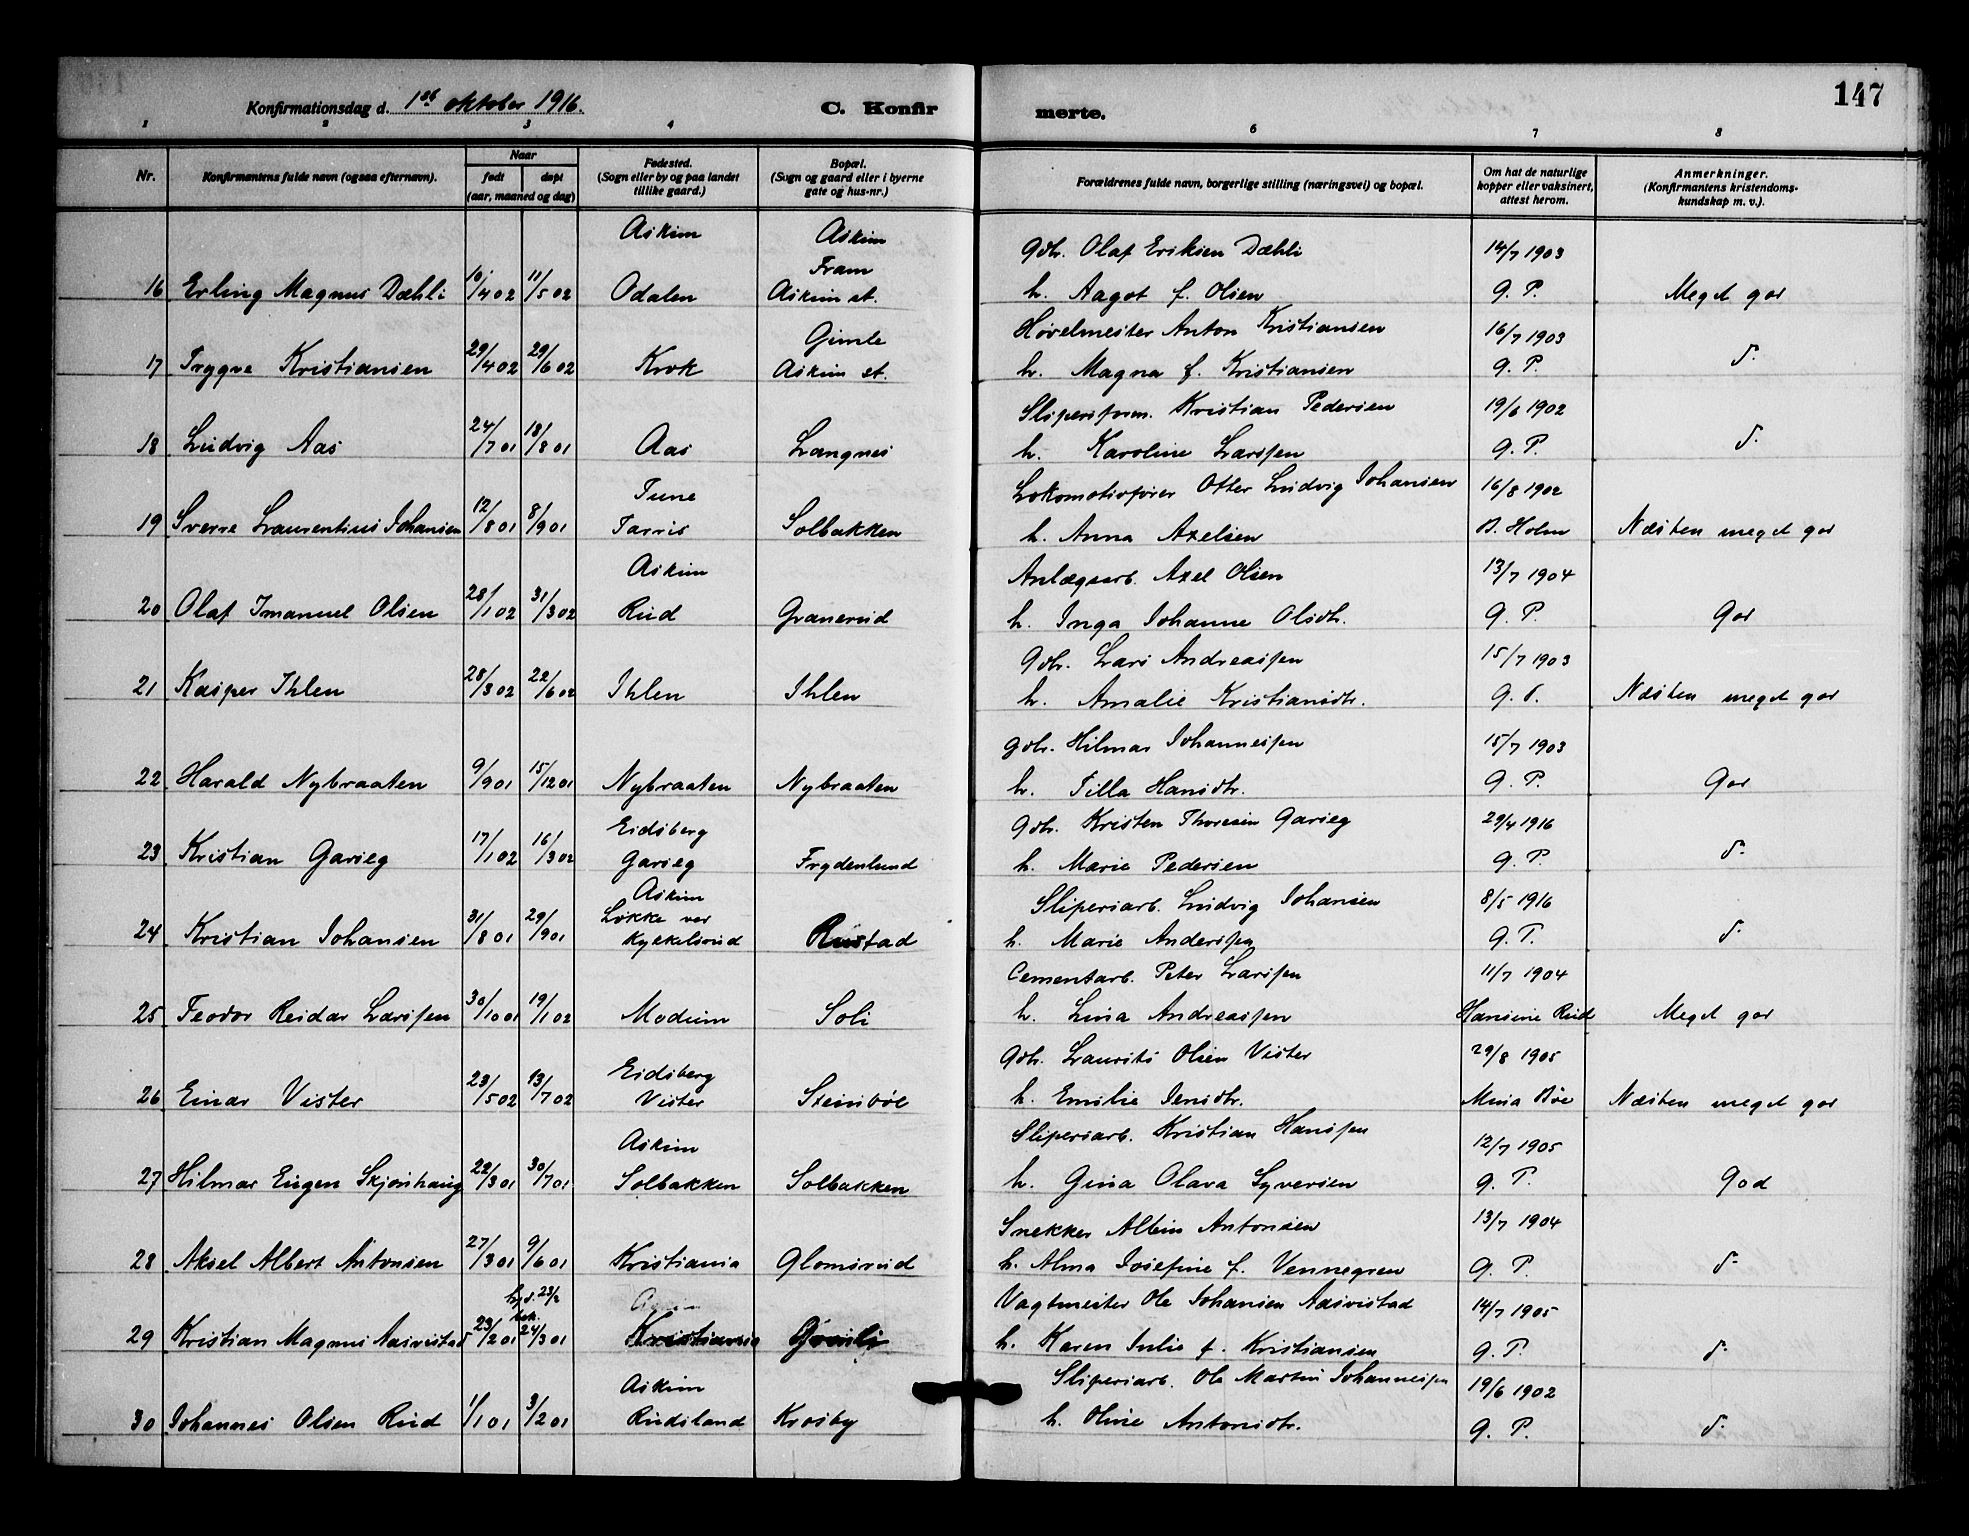 147
Konfirmationsdag d. 1ste oktober 1916.
C. Konfirmerte.
1 2 3 4 6 7 8
Nr.
Konfirmantens fulde navn (ogsaa efternavn).
Naar
født
døpt
(aar, maaned og dag)
Fødested.
(Sogn eller by og paa landet
tillike gaard.)
Bopæl.
(Sogn og gaard eller i byerne
gate og hus-nr.)
Forældrenes fulde navn, borgerlige stilling (næringsvei) og bopæl.
Om hat de naturlige
kopper eller vaksinert,
attest herom.
Anmerkninger.
(Konfirmantens kristendoms-
kundskap m. v.).
Askim Askim Gdb. Olaf Eriksen Dæhli 14/7 1903
Fram
16 Erling Magnus Dæhli 10/4 02 11/5 02 Odalen Askim st. h. Aagot f. Olsen G. P. Meget god
Gimle Høvelmester Anton Kristiansen 16/7 1903
17 Trygve Kristiansen 29/4 02 29/6 02 Krok Askim st. h. Magna f. Kristiansen G. P. d-
Sliperiform. Kristian Pedersen 19/6 1902
18 Ludvig Aas 24/7 01 18/8 01 Aas Langnes h. Karoline Larssen G. P. d-
Tune Lokomotivfører Otter Ludvig Johansen 16/8 1902
19 Sverre Laurentius Johansen 12/8 01 8/9 01 Tarris Solbakken h. Anna Axelsen B. Holm Næsten meget god
Askim Anlægsarb. Axel Olsen 13/7 1904
20 Olaf Imanuel Olsen 28/1 02 31/3 02 Rud Granerud h. Inga Johanne Olsdtr. G. P. God
Gdb. Lars Andreassen 15/7 1903
21 Kasper Ihlen 28/3 02 22/6 02 Ihlen Ihlen h. Amalie Kristiansdtr. G. P. Næsten meget god
Gdb. Hilmar Johannessen 15/7 1903
22 Harald Nybraaten 9/9 01 15/12 01 Nybraaten Nybraaten h. Tilla Hansdtr. G. P. God
Eidsberg Gdb. Kristen Thoresen Garseg 29/4 1916
23 Kristian Garseg 17/1 02 16/3 02 Garseg Frydenlund h. Marie Pedersen G. P. d-
Askim Sliperiarb. Ludvig Johansen 8/5 1916
Løkke ved
24 Kristian Johansen 31/8 01 29/9 01 Kykkelsrud Rustad h. Marie Anderssen G. P. d-
Cementarb. Peter Larssen 11/7 1904
25 Teodor Reidar Larssen 30/10 01 19/1 02 Modum Soli h. Lina Andreassen Hansine Rud Meget god
Eidsberg Gdb. Laurits Olsen Vister 29/8 1905
26 Einar Vister 23/5 02 13/7 02 Vister Steinbøl h. Emilie Jensdtr. Mina Bøe Næsten meget god
Askim Sliperiarb. Kristian Hanssen 12/7 1905
27 Hilmar Eugen Skjønhaug 22/3 01 30/7 01 Solbakken Solbakken h. Gina Olava Syversen G. P. God
Snekker Albin Antonsen 13/7 1904
28 Aksel Albert Antonsen 27/3 01 9/6 01 Kristiania Glomsrud h. Alma Josefine f. Vennegren G. P. d-
hjd. 23/2 Vagtmester Ole Johansen Aasvistad 14/7 1905
bek.
29 Kristian Magnus Aasvistad 23/2 01 24/3 01 Kristiania h. Karen Julie f. Kristiansen G. P. d-
Askim Sliperiarb. Ole Martin Johannessen 19/6 1902
30 Johannes Olsen Rud 1/1 01 3/2 01 Rudsland Krosby h. Oline Antonsdtr. G. P. d-